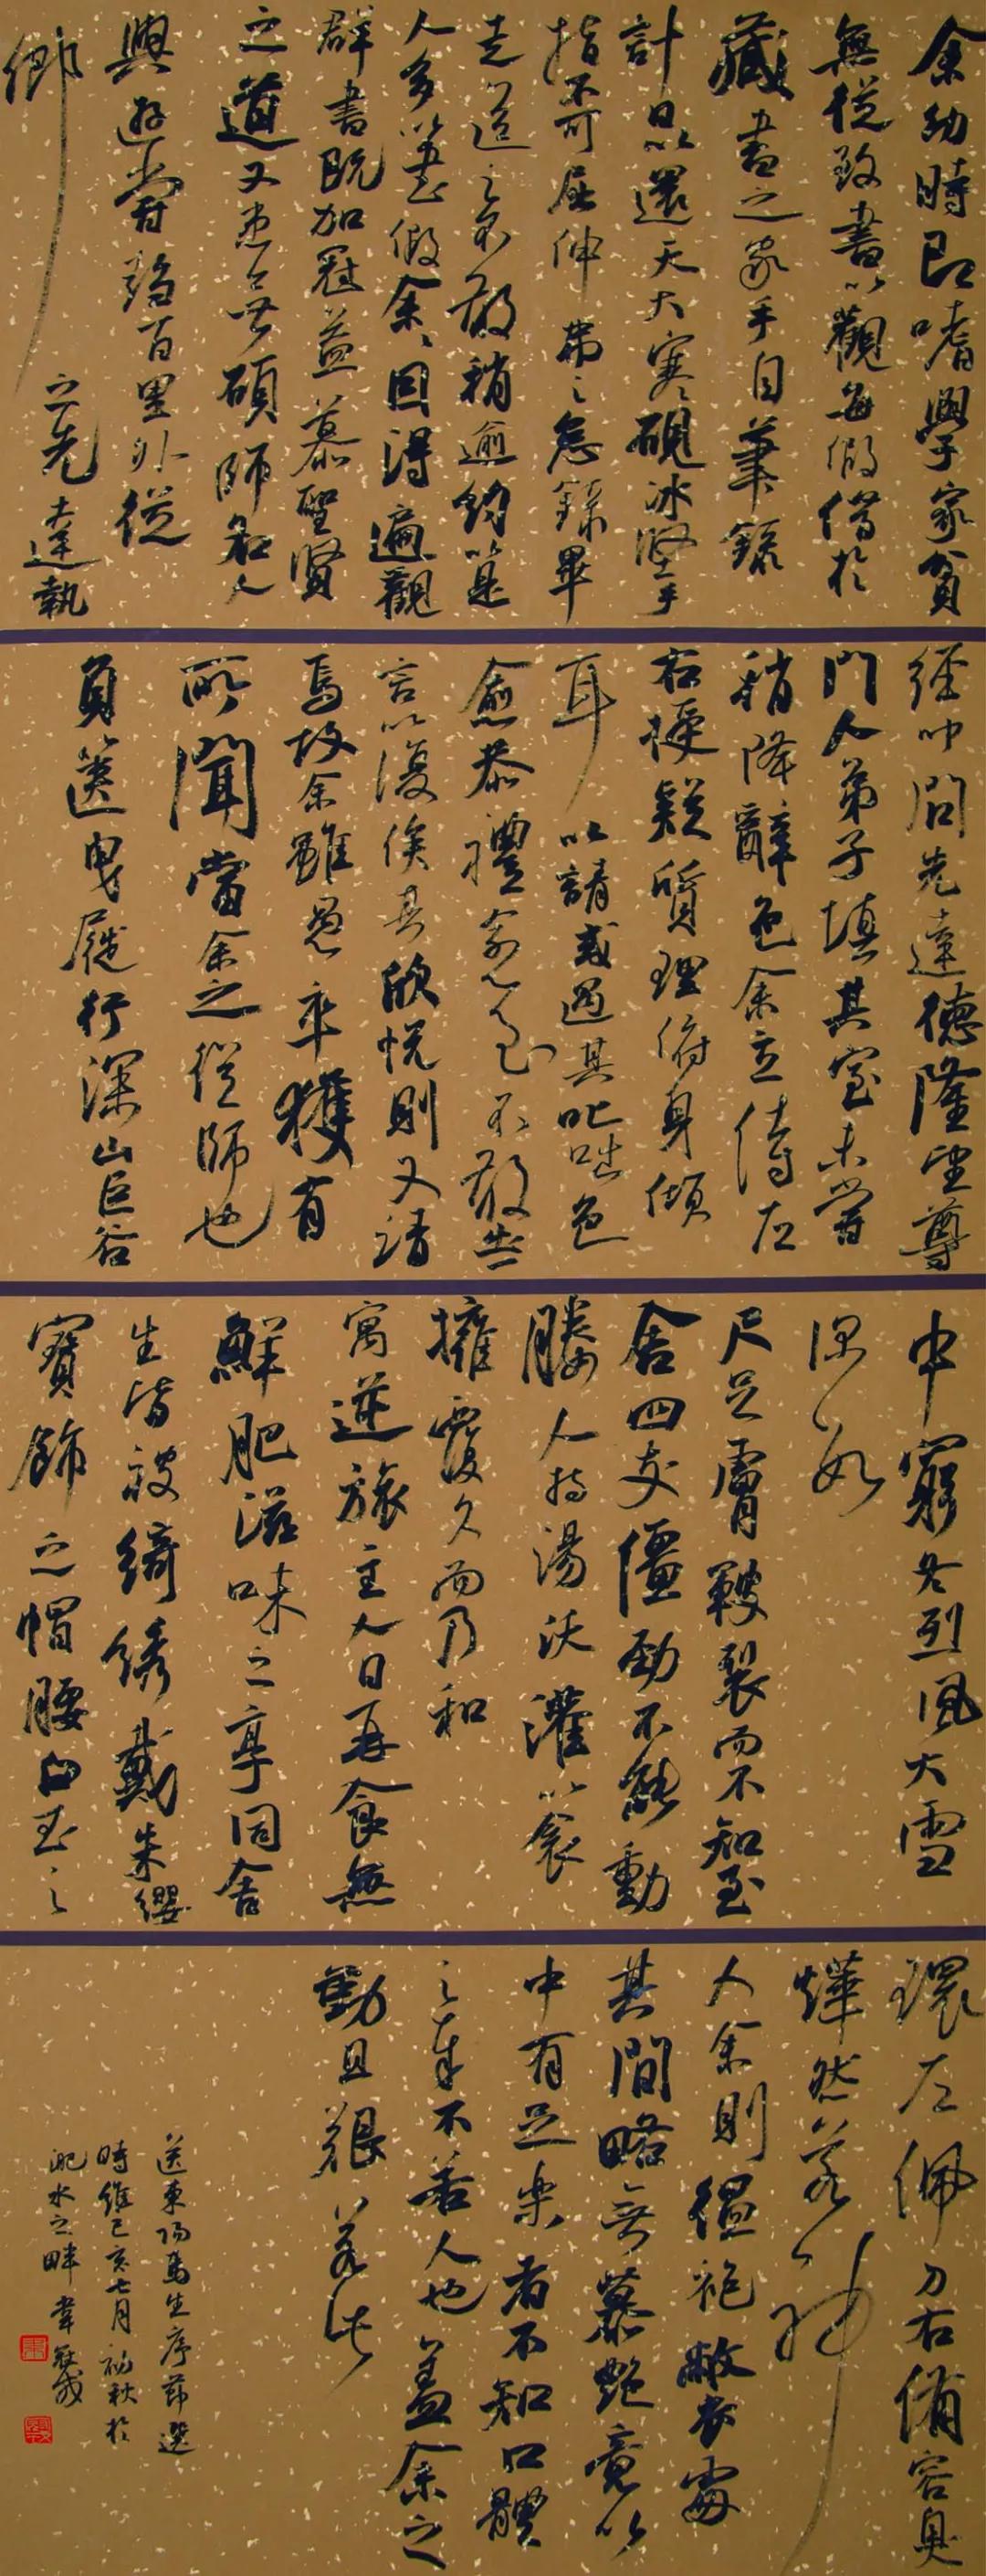 余幼時即嗜學家貧
無從致書以觀每假借於
藏書之家手自筆錄
計日以還天大寒硯冰堅手
指不可屈伸弗之怠錄畢
走送之不敢稍逾約以是
人多以書假余余因得遍觀
群書既加冠益慕聖賢
之道又患無碩師名人
與遊嘗趨百里外從
鄉之先達執
經叩問先達德隆望尊
門人弟子填其室未嘗
稍降辭色余立侍左
右援疑質理俯身傾
耳以請或遇其叱咄色
愈恭禮愈至不敢出
言以復俟其欣悅則又請
焉故余雖愚卒獲有
所聞當余之從師也
負篋曳屣行深山巨谷
中窮冬烈風大雪
深數
尺足膚皸裂而不知至
舍四支僵勁不能動
媵人持湯沃灌以衾
擁覆久而乃和
寓逆旅主人日再食無
鮮肥滋味之享同舍
生皆被綺繡戴朱纓
寶飾之帽腰白玉之
環左佩刀右備容臭
燁然若神
人余則縕袍敝衣處
其間略無慕艷意以
中有足樂者不知口體
之奉不若人也蓋余之
勤且艱若此
送東陽馬生序節選
時維己亥七月初秋於
淝水之畔韋